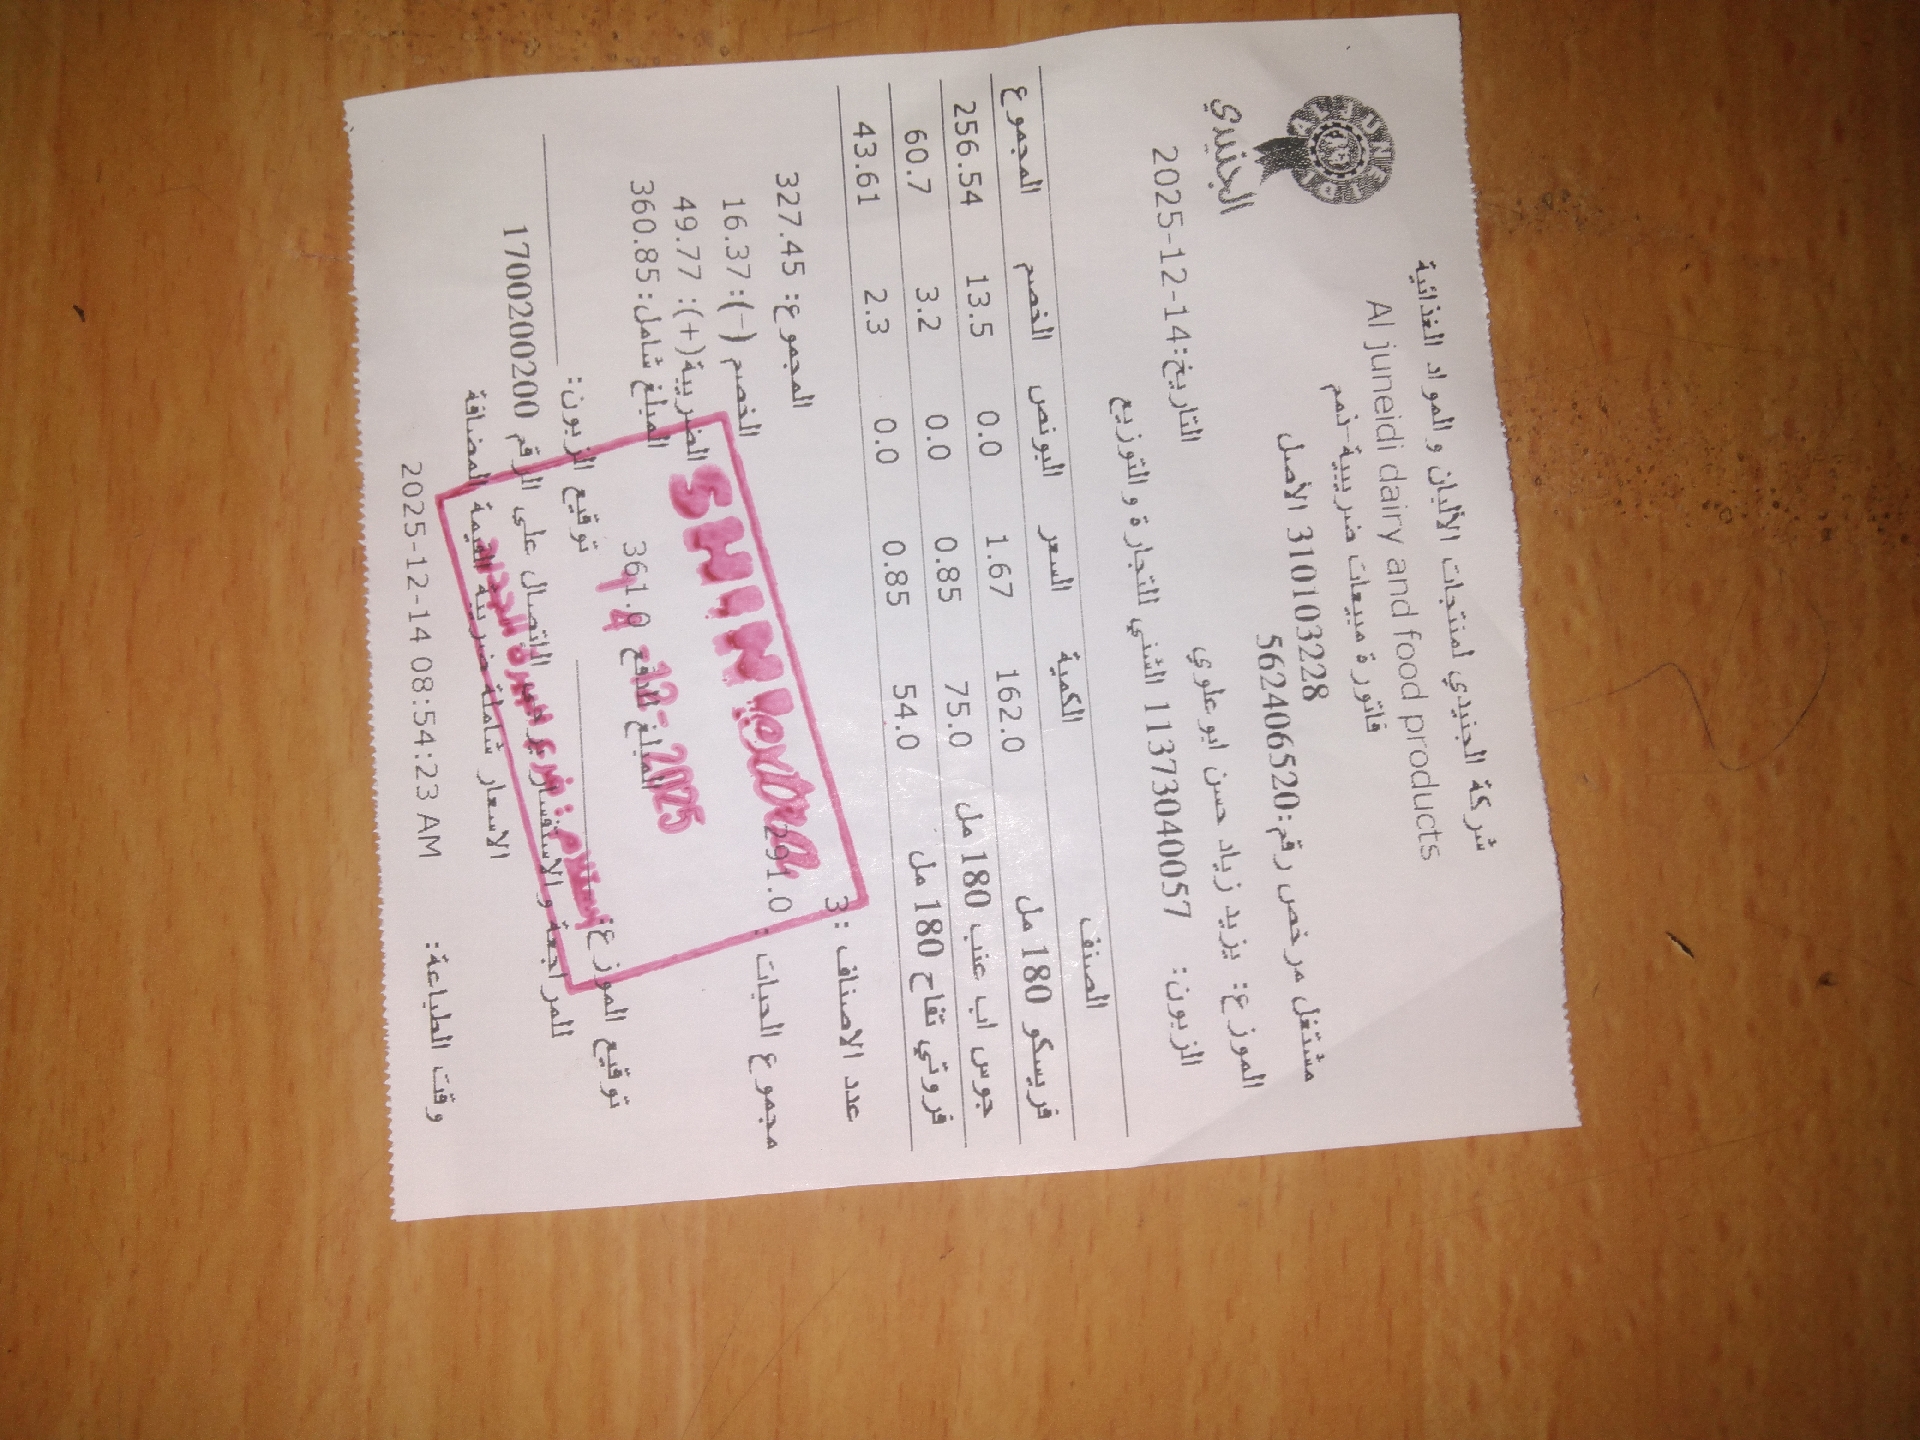 شركة الجنيدي لمنتجات الألبان والمواد الغذائية
Al juneidi dairy and food products
فاتورة مبيعات ضريبية-ذمم
310103228 الأصل
مشتغل مرخص رقم:562406520
AL JUNEIDI
الجنيدي
الموزع: يزيد زياد حسن ابو علوي
التاريخ:2025-12-14
الزبون: 11373040057 الشني للتجارة والتوزيع
الصنف الكمية السعر البونص الخصم المجموع
فريسكو 180 مل 162.0 1.67 0.0 13.5 256.54
جوس اب عنب 180 مل 75.0 0.85 0.0 3.2 60.7
فروتي تفاح 180 مل 54.0 0.85 0.0 2.3 43.61
عدد الاصناف : 3 المجموع: 327.45
مجموع الحبات : 291.0 الخصم (-): 16.37
الضريبة(+): 49.77
المبلغ شامل: 360.85
المبلغ للدفع 361.0
توقيع الموزع: توقيع الزبون:
للمراجعة والاستفسار يرجى الاتصال على الرقم 1700200200
الاسعار شاملة ضريبة القيمة المضافة
وقت الطباعة: 2025-12-14 08:54:23 AM
SHINI extra
14 -12- 2025
استلام: فرع البيرة الجديد